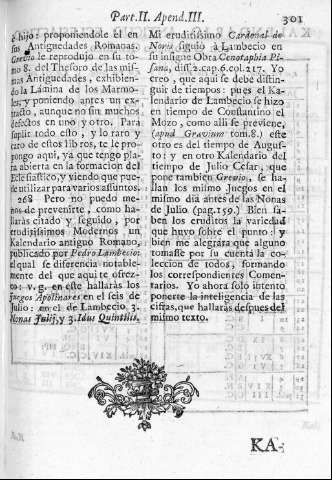 Part. II. Apend. III.
301
é hijo: proponiendole él en
sus Antiguedades Romanas.
Grevio le reprodujo en su to-
mo 8. del Thesoro de las mis-
mas Antiguedades, exhibien-
do la Lámina de los Marmo-
les, y poniendo antes un ex-
tracto, aunque no sin muchos
defectos en uno y otro. Para
suplir todo esto, y lo raro y
caro de estos libros, te le pro-
pongo aqui, ya que tengo pla-
na abierta en la formacion del
Eclesiastico, y viendo que pue-
de utilizar para varios assuntos.
268 Pero no puedo me-
nos de prevenirte, como ha-
llarás citado y seguido, por
eruditissimos Modernos un
Kalendario antiguo Romano,
publicado por Pedro Lambecio:
el qual se diferencia notable-
mente del que aqui te ofrez-
co: v.g. en este hallarás los
Juegos Apolinares en el seis de
Julio: en el de Lambecio 3.
Nonas Julij, y 3. Idus Quintilis.
Mi eruditissimo Cardenal de
Noris siguió à Lambecio en
su insigne Obra Cenotaphia Pi-
sana, diss. 2. cap. 6. col. 217. Yo
creo, que aqui se debe distin-
guir de tiempos: pues el Ka-
lendario de Lambecio se hizo
en tiempo de Constantino el
Mozo, como alli se previene,
(apud Gravium tom. 8.) este
otro es del tiempo de Augus-
to: y en otro Kalendario del
tiempo de Julio Cesar, que
pone tambien Grevio, se ha-
llan los mismo Juegos en el
mismo dia antes de las Nonas
de Julio (pag. 159.) Bien sa-
ben los eruditos la variedad
que huvo sobre el punto: y
bien me alegrára que alguno
tomasse por su cuenta la co-
leccion de todos, formando
los correspondientes Comen-
tarios. Yo ahora solo intento
ponerte la inteligencia de las
cifras, que hallarás despues del
mismo texto.
KA-